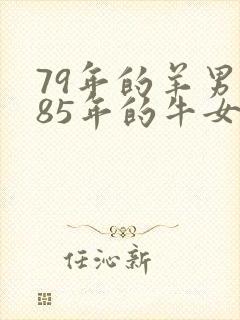 79年的羊男
85年的牛女
任沁新